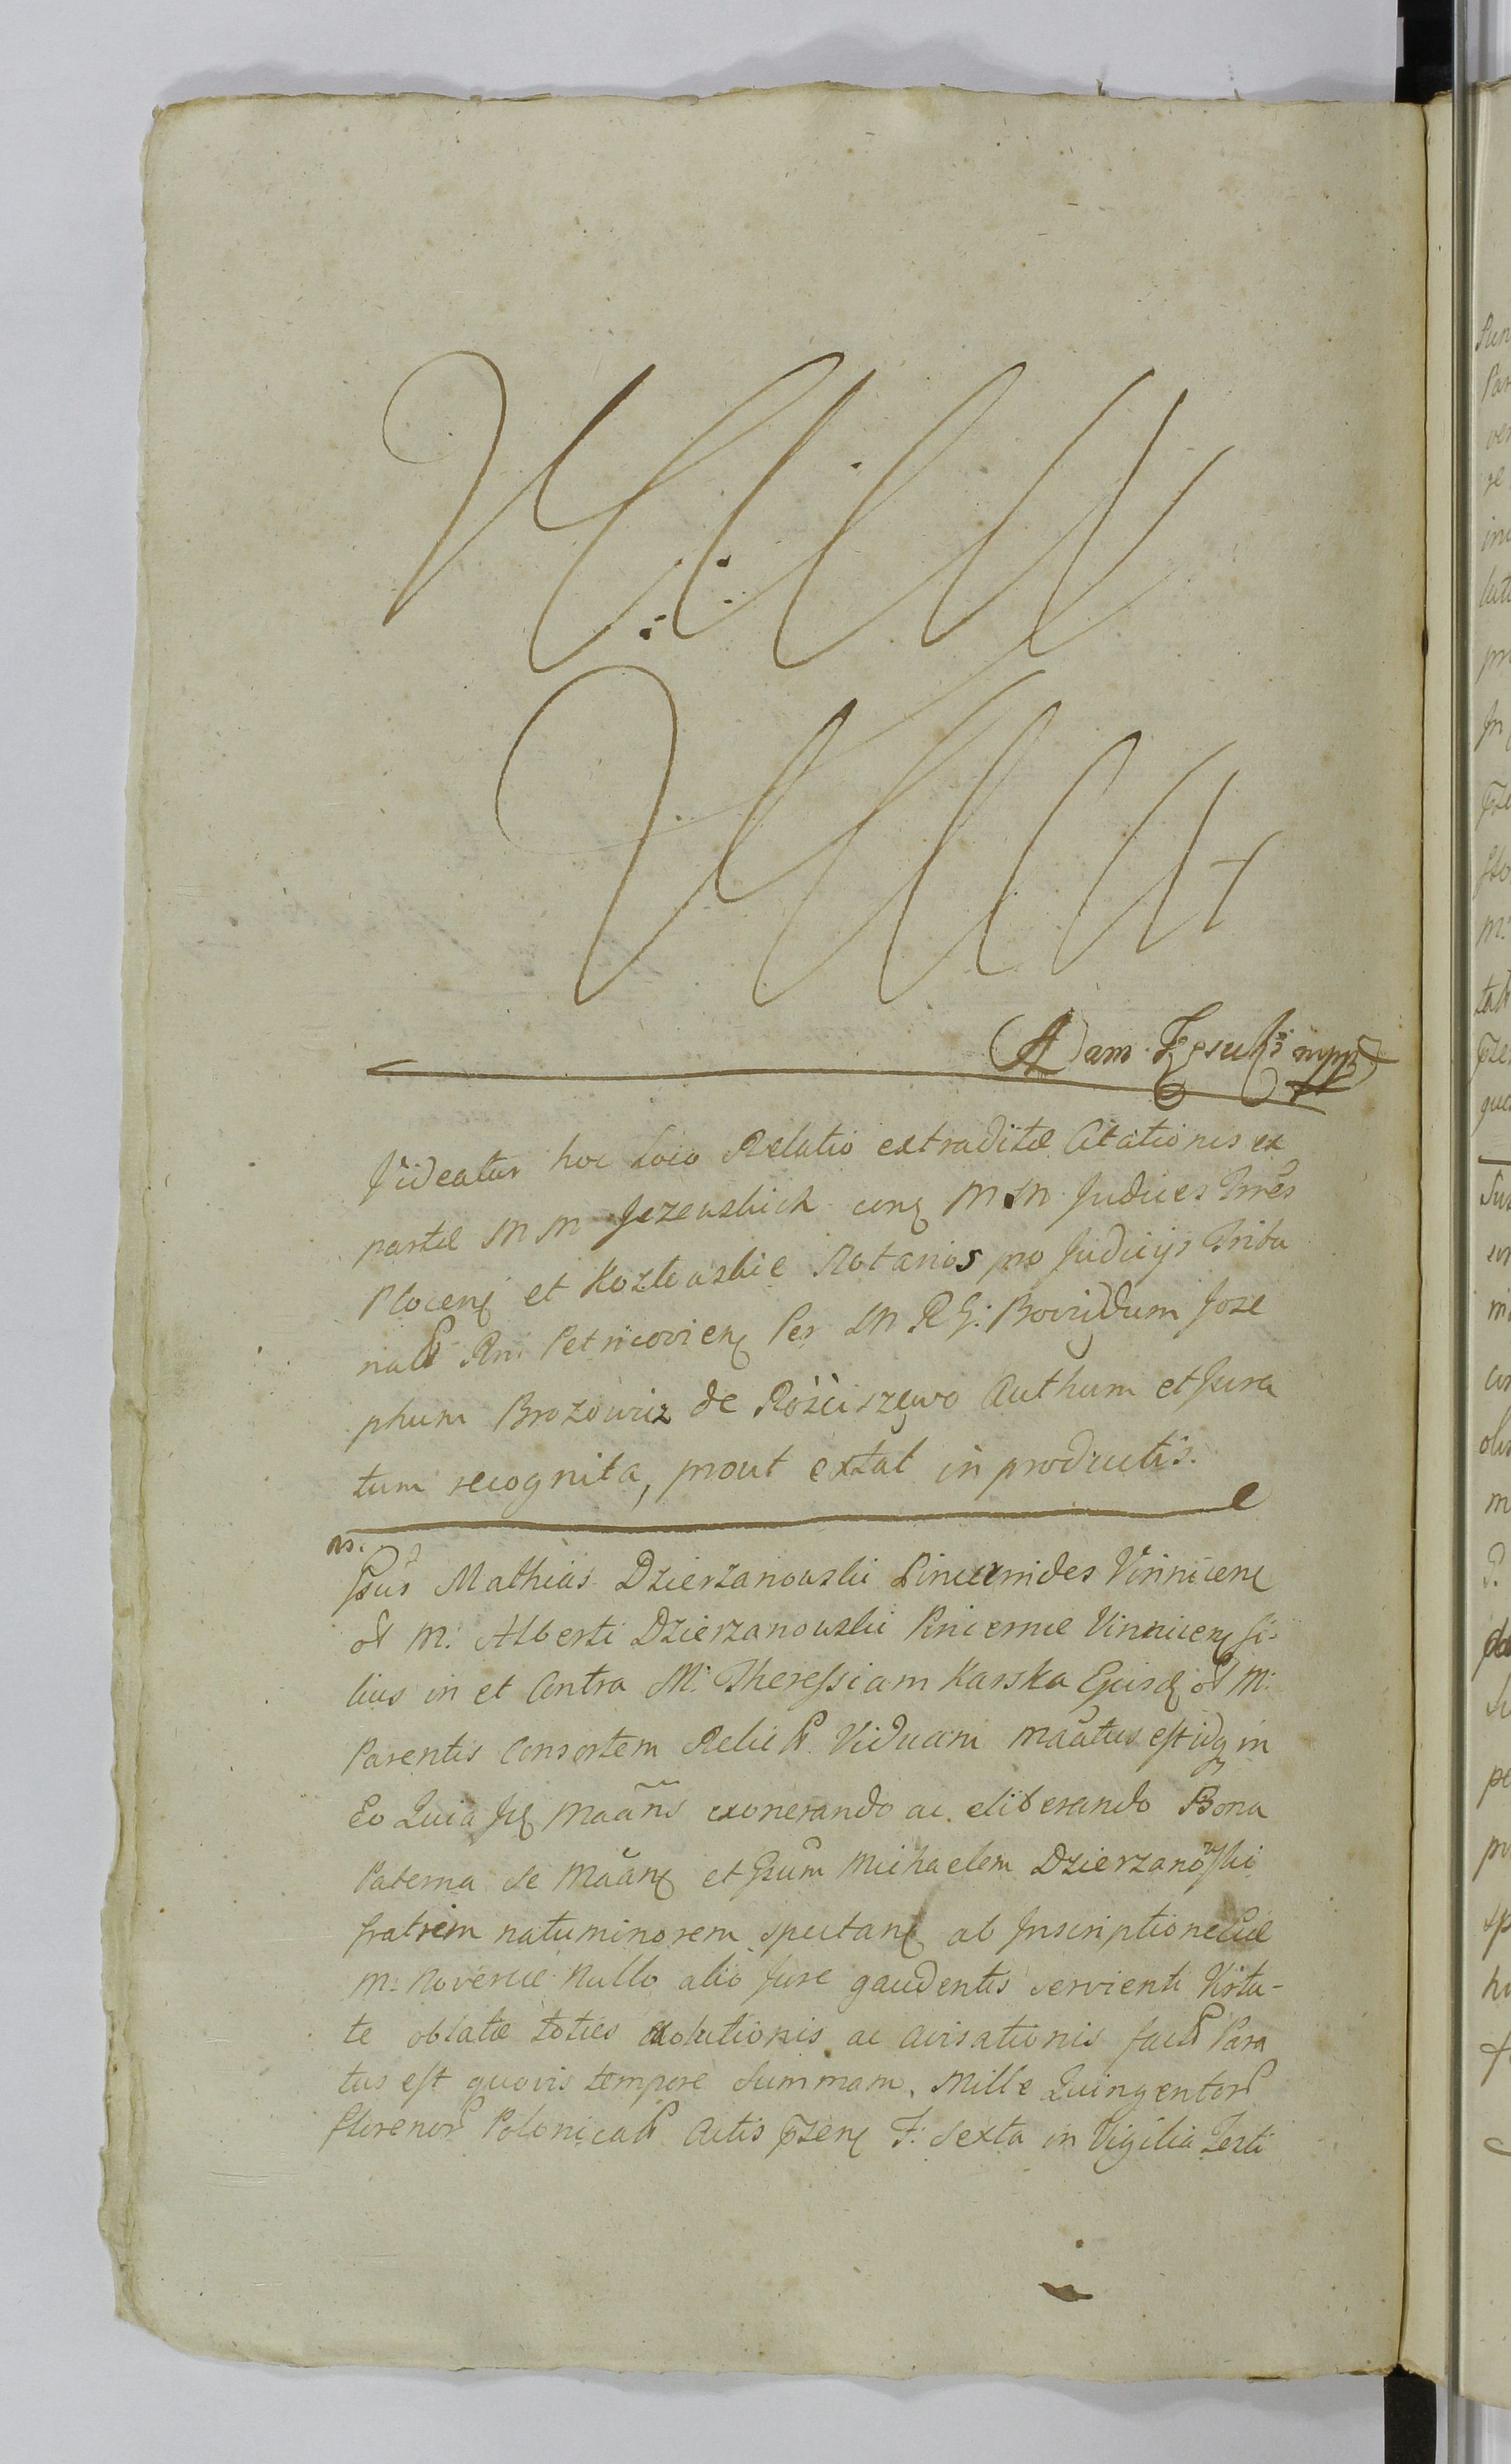 Adam mpp
Videatur hoc loco Relatio extraditæ Citationis ex
parte M M Jezewskich conq M M Judices Trrēs
Plocenq et Kozlowskie Notarios pro Judicijs Tribu
nalt Rni Petricovienq Per M R G: Providum Joze
phum Brozowicz de Rościszewo Authum et Jura
tum recognita, prout extat in productis.
ns.
Gsus Mathias Dzierzanowski Pincernides Vinnicenq
ol M: Alberti Dzierzanowski Pincernæ Vinnicenq fi-
lius in et Contra M: Theressiam Karska Ejusdq ol M:
Parentis Consortem Relict Viduam maātus est idq in
Eo Quia Jq Maāns exonerando ac eliberando Bona
Paterna se Maānq et Gsum Michaelem Dzierzanowski
fratrem natuminorem spectanq ab Inscriptione suæ
M: Novercæ nullo alio Jure gaudentis servienti Virtu-
te oblatæ toties exolutionis ac avisationis fact Para
tus est quovis tempore Summam Mille Quingentor
florenor Polonicalt Actis przenq F: Sexta in Vigilia Festi